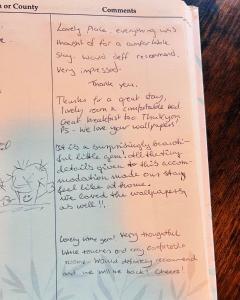 n or County
Comments
Lovely Place everything was
thought of for a comfortable
stay. Would deff recommend.
Very impressed.
Thank you.
Thanks for a great stay,
lovely room & comfortable bed
Great breakfast too. Thank you
PS - we love your wallpapers!
It is a surprisingly beauti-
ful little gem! All the tiny
details given to this accom-
modation made our stay
feel like at home.
We loved the wallpapers
as well!!
Lovely little gem! Very thoughtful
little touches and very comfortable
rooms. Would definitely recommend
and we will be back! Cheers!